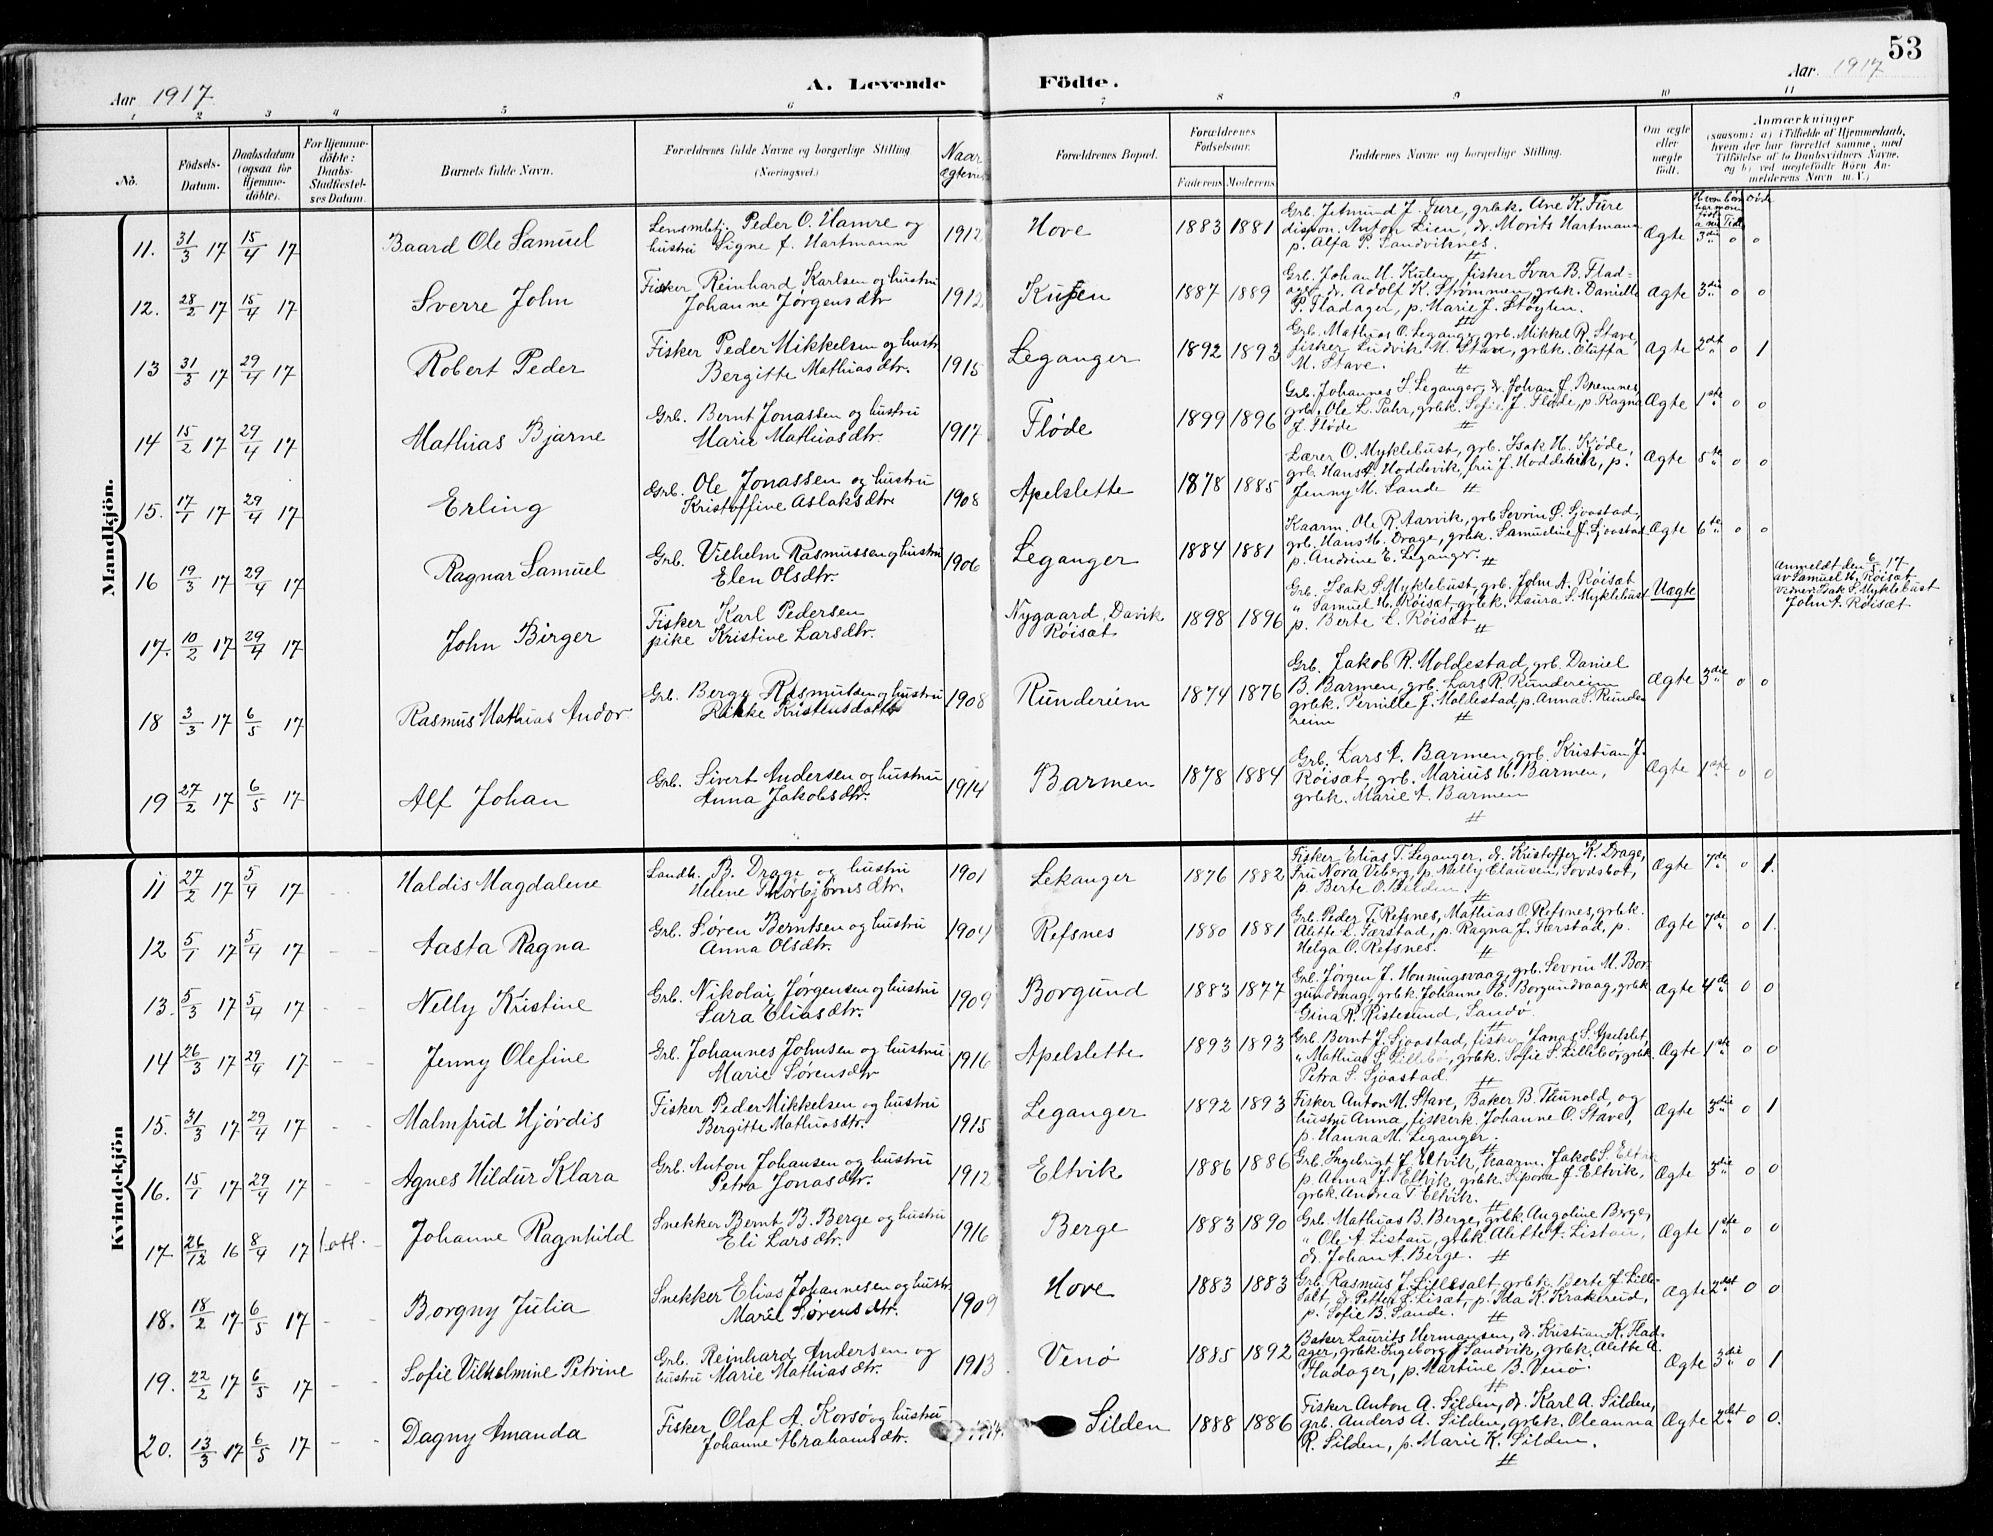 53
Aar 1917
A. Levende Födte.
Aar. 1917
1 2 3 4 5 6 7 8 9 10 11
No.
Födsels-Datum.
Daabsdatum (ogsaa for Hjemme-döbte).
For Hjemme-döbte: Daabs-Stadfæstel-ses Datum.
Barnets fulde Navn.
Forældrenes fulde Navne og borgerlige Stilling (Næringsvei.)
Naar ægteviet
Forældrenes Bopæl.
Forældrenes Födselsaar.
Faderens Moderens
Faddernes Navne og borgerlige Stilling.
Om ægte eller uægte født.
Anmærkninger
(saasom: a) i Tilfælde af Hjemmedaab, hvem der har forrettet samme, med Tilföielse af to Daabsvidners Navne, og b) ved uægtefödte Börn An-melderens Navn m. V.)
Mandkjön.
11. 31/3 17 15/4 17 Baard Ole Samuel
Lensmbtj. Peder O. Hamre og
hustru Signe f. Hartmann
1912 Hove 1883 1881
Grb. Jetmund J. Fure, grbk. Ane K. Fure
dispon. Anton Lien, dr. Morits Hartmann
p. Alfa P. Sandviknes.
Ægte 3die 0 0
12. 28/2 17 15/4 17 Sverre John
Fisker Reinhard Karlsen og hustru
Johanne Jørgensdtr
1912 1887 1889
Grb. Johan H. Kulen, fisker Ivar B. Flad-
ager, dr. Adolf K. Strømmen, grbk. Danielle
P. Fladager, p. Marie J. Støylen.
Ægte 3die 0 0
13 31/3 17 29/4 17 Robert Peder
Fisker Peder Mikkelsen og hustr.
Bergitte Mathiasdtr.
1915 Leganger 1892 1893
Grb. Mathias O. Leganger, grb. Mikkel R. Stave,
fisker Ludvik M. Stave, grbk. Oluffa
M. Stave.
Ægte 2det 0 1
14 15/2 17 29/4 17 Mathias Bjarne
Grb. Bernt Jonassen og hustru
Marie Mathiasdtr.
1917 Fløde 1899 1896
Grb. Johannes S. Leganger, dr. Johan J. Bremnes,
grb. Ole L. Pahr, grbk. Sofie J. Fløde, p. Ragna
J. Fløde
Ægte 1ste 0 0
15. 17/1 17 29/4 17 Erling
Grb. Ole Jonassen og hustru
Kristoffine Aslaksdtr.
1908 Apelslette 1878 1885
Lærer O. Myklebust, grb. Isak H. Kjøde,
grb. Hans A. Hoddevik, fru J. Hoddevik, p.
Jenny M. Sande
Ægte 5te 0 0
16 19/3 17 29/4 17 Ragnar Samuel
Grb. Vilhelm Rasmussen og hustru
Elen Olsdtr.
1906 Leganger 1884 1881
Kaarm. Ole R. Aarvik, grb Sevrin S. Sjoastad,
grb. Hans M. Drage, grbk. Samueline J. Sjoastad
p. Andrine E. Leganger.
Ægte 6te 0 0
17. 10/2 17 29/4 17 John Birger
Fisker Karl Pedersen
pike Kristine Larsdtr.
Nygaard, Davik
Røisæt
1898 1896
Grb. Isak S. Myklebust, grb. John A. Røisæt
" Samuel H. Røisæt, grbk. Laura S. Myklebust
p. Berte L. Røisæt
Uægte
Anmeldt den 6/5 17
av Samuel H. Røisæt
vidner: Isak S. Myklebust
John A. Røisæt
18 3/3 17 6/5 17 Rasmus Mathias Andor
Grb. Berge Rasmussen og hustru
Rikke Kristensdatter
1908 Runderéim 1874 1876
Grb. Jakob R. Moldestad, grb. Daniel
B. Barmen, grb. Lars R. Runderéim
grbk. Pernille J. Moldestad, p. Anna S. Runde-
reim
Ægte 3die 0 0
19 27/2 17 6/5 17 Alf Johan
Grb. Sivert Andersen og hustru
Anna Jakobsdtr.
1914 Barmen 1878 1884
Grb. Lars A. Barmen, grb. Kristian J.
Røisæt, grb. Marius H. Barmen,
grbk. Marie A. Barmen
Ægte 1ste 0 0
Kvindekjön
11 27/2 17 5/4 17 Haldis Magdalene
Landh. B. Drage og hustru
Helene Thorbjørnsdtr.
1901 Lekanger 1876 1882
Fisker Elias T. Leganger, dr. Kristoffer K. Drage,
Fru Nora Veberg, p. Nelly Clausen, Tovdsbot,
p. Berte O. Silden.
Ægte 7de 0 1.
12 5/1 17 5/4 17 Aasta Ragna
Grb. Søren Berntsen og hustru
Anna Olsdtr.
1904 Refsnes 1880 1881
Grb. Peder T. Refsnes, Mathias O. Refsnes, grbk.
Alette L. Færstad, p. Ragna J. Færstad, p.
Helga O. Refsnes.
Ægte 7de 0 1.
13. 5/3 17 5/4 17 Nelly Kristine
Grb. Nikolai Jørgensen og hustru
Sara Eliasdtr.
1909 Borgund 1883 1877
Grb. Jørgen J. Honningsvaag, grb. Sevrin M. Bor-
gundvaag, grbk. Johanne E. Borgundvaag, grbk
Gina R. Ristesund, Sandø.
Ægte 4de 0 0
14 26/3 17 29/4 17 Jenny Olefine
Grb. Johannes Johnsen og hustru
Marie Sørensdtr
1916 Apelslette 1893 1893
Grb. Bernt J. Sjoastad, fisker Jonas S. Apelslet,
" Mathias S. Lillebø, grbk. Sofie S. Lillebø, grbk.
Petra S. Sjoastad.
Ægte 1ste 0 0
15. 31/3 17 29/4 17 Malmfrid Hjørdis
Fisker Peder Mikkelsen og hustru
Bergitte Mathiasdtr.
1915 Leganger 1892 1893
Fisker Anton M. Stave, Baker B. Taunold, og
hustru Anna, fiskerk. Johanne O. Stave,
p. Hanna M. Leganger.
Ægte 3die 0 1
16. 15/1 17 29/4 17 Agnes Hildur Klara
Grb. Anton Johansen og hustru
Petra Jonasdtr.
1912 Eltvik 1886 1886
Grb. Ingebrigt J. Eltvik, kaarm. Jakob S. Eltvik
p. Anna J. Eltvik, grbk. Sipora J. Eltvik,
grbk. Andrea T. Eltvik.
Ægte 3die 0 0
17. 26/12 16 8/4 17 Johanne Ragnhild
Snekker Bernt B. Berge og hustru
Eli Larsdtr.
1916 Berge 1883 1890
Grb. Mathias B. Berge, grbk. Angoline Berge,
" Ole A. Listau, grbk. Alette A. Listau,
dr. Johan A. Berge.
Ægte 1ste 0 0
18. 18/2 17 6/5 17 Borgny Julia
Snekker Elias Johannesen og hustr.
Marie Sørensdtr.
1909 Hove 1883 1883
Grb. Rasmus J. Lillesalt, grbk. Berte J. Lille-
salt, dr. Petter J. Lisæt, p. Ida K. Krakereid,
p. Sofie B. Sande.
Ægte 2det 0 0
19. 22/2 17 6/5 17 Sofie Vilhelmine Petrine
Grb. Reinhard Andersen og
hustru Marie Mathiasdtr.
1913 Venø 1885 1892
Baker Laurits Hermansen, dr. Kristian K. Flad-
ager, grbk. Ingeborg J. Sandvik, grbk. Alette A.
Fladager, p. Martine B. Venø.
Ægte 3die 0 1
20. 13/3 17 6/5 17 Dagny Amanda
Fisker Olaf A. Korsø og hustru
Johanne Abrahamsdtr.
1914. Silden 1888 1886
Fisker Anton A. Silden, dr. Karl A. Silden,
grb. Anders A. Silden, grbk. Oleanna
R. Silden, p. Marie K. Silden.
Ægte 2det 0 0.